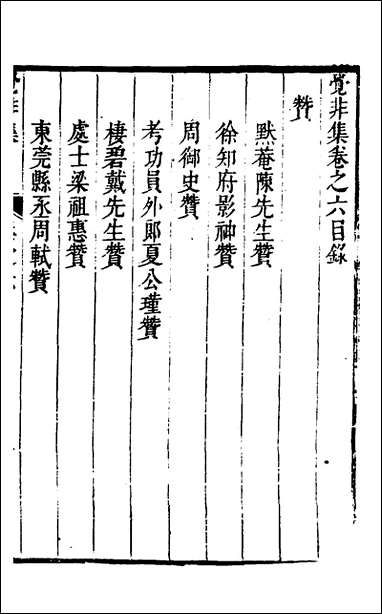 覺非集卷之六目錄
贊
默菴陳先生贊
徐知府影神贊
周御史贊
考功員外郎夏公瑾贊
棲碧戴先生贊
處士梁祖惠贊
東莞縣丞周軾贊
覺非集